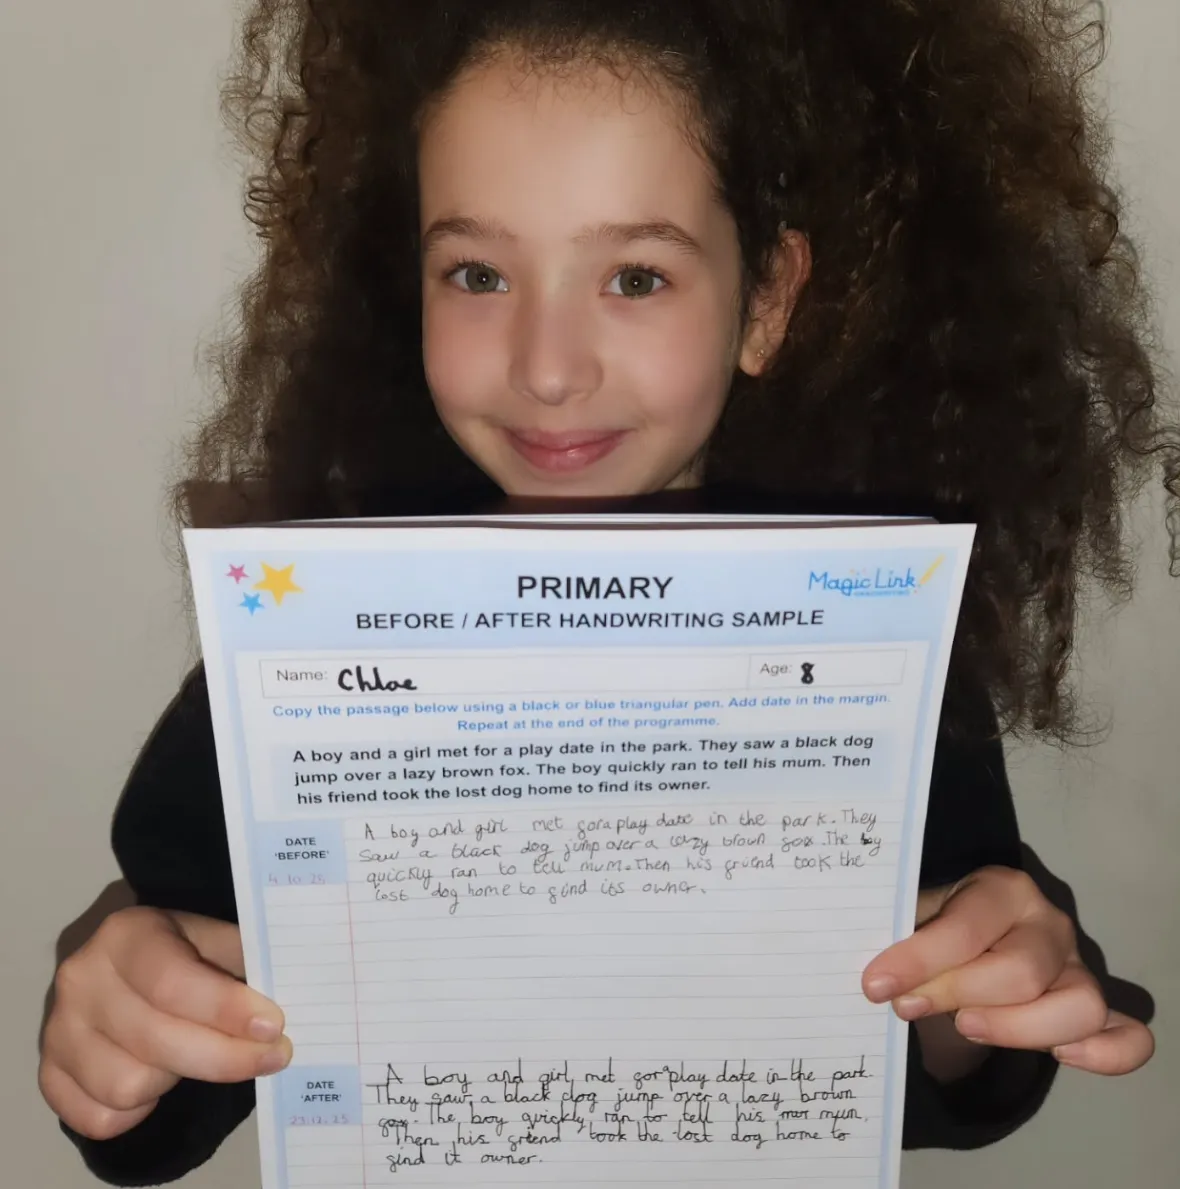 PRIMARY
Magic Link
HANDWRITING
BEFORE / AFTER HANDWRITING SAMPLE
Name: Chloe
Age: 8
Copy the passage below using a black or blue triangular pen. Add date in the margin.
Repeat at the end of the programme.
A boy and a girl met for a play date in the park. They saw a black dog
jump over a lazy brown fox. The boy quickly ran to tell his mum. Then
his friend took the lost dog home to find its owner.
DATE
'BEFORE'
4.10.25
A boy and girl met for a play date in the park. They
saw a black dog jump over a lazy brown fox. The boy
quickly ran to tell mum. Then his friend took the
lost dog home to find its owner.
DATE
'AFTER'
23.12.25
A boy and girl met for a play date in the park.
They saw a black dog jump over a lazy brown
fox. The boy quickly ran to tell his mum.
Then his friend took the lost dog home to
find it owner.